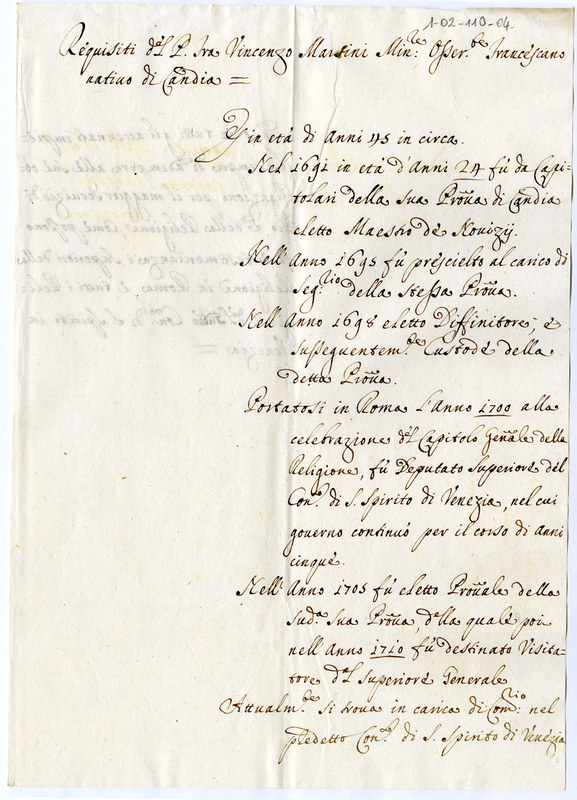 1-02-110-04.
Requisiti del P. Fra Vincenzo Martini Min:re Osser:be Francescano
nativo di Candia =
È in età di Anni 45 in circa.
Nel 1691 in età d'Anni 24 fù da Capi-
tolari della sua Proũa di Candia
eletto Maestro de Novizij.
Nell' Anno 1695 fù prescielto al carico di
Seg:rio della stessa Proũa.
Nell' Anno 1698 eletto Diffinitore, e
susseguentem:te Custode della
detta Proũa.
Portatosi in Roma l'Anno 1700 alla
celebrazione del Capitolo Gen̄ale della
Religione, fù Deputato Superiore del
Con:to di S. Spirito di Venezia, nel cui
governo continuò per il corso di anni
cinque.
Nell' Anno 1705 fù eletto Proũale della
sud:a sua Proũa, della quale poi
nell' Anno 1710 fù destinato Visita-
tore del Superiore Generale
Attualm:te si trova in carica di Com:rio nel
predetto Con:to di S. Spirito di Venezia